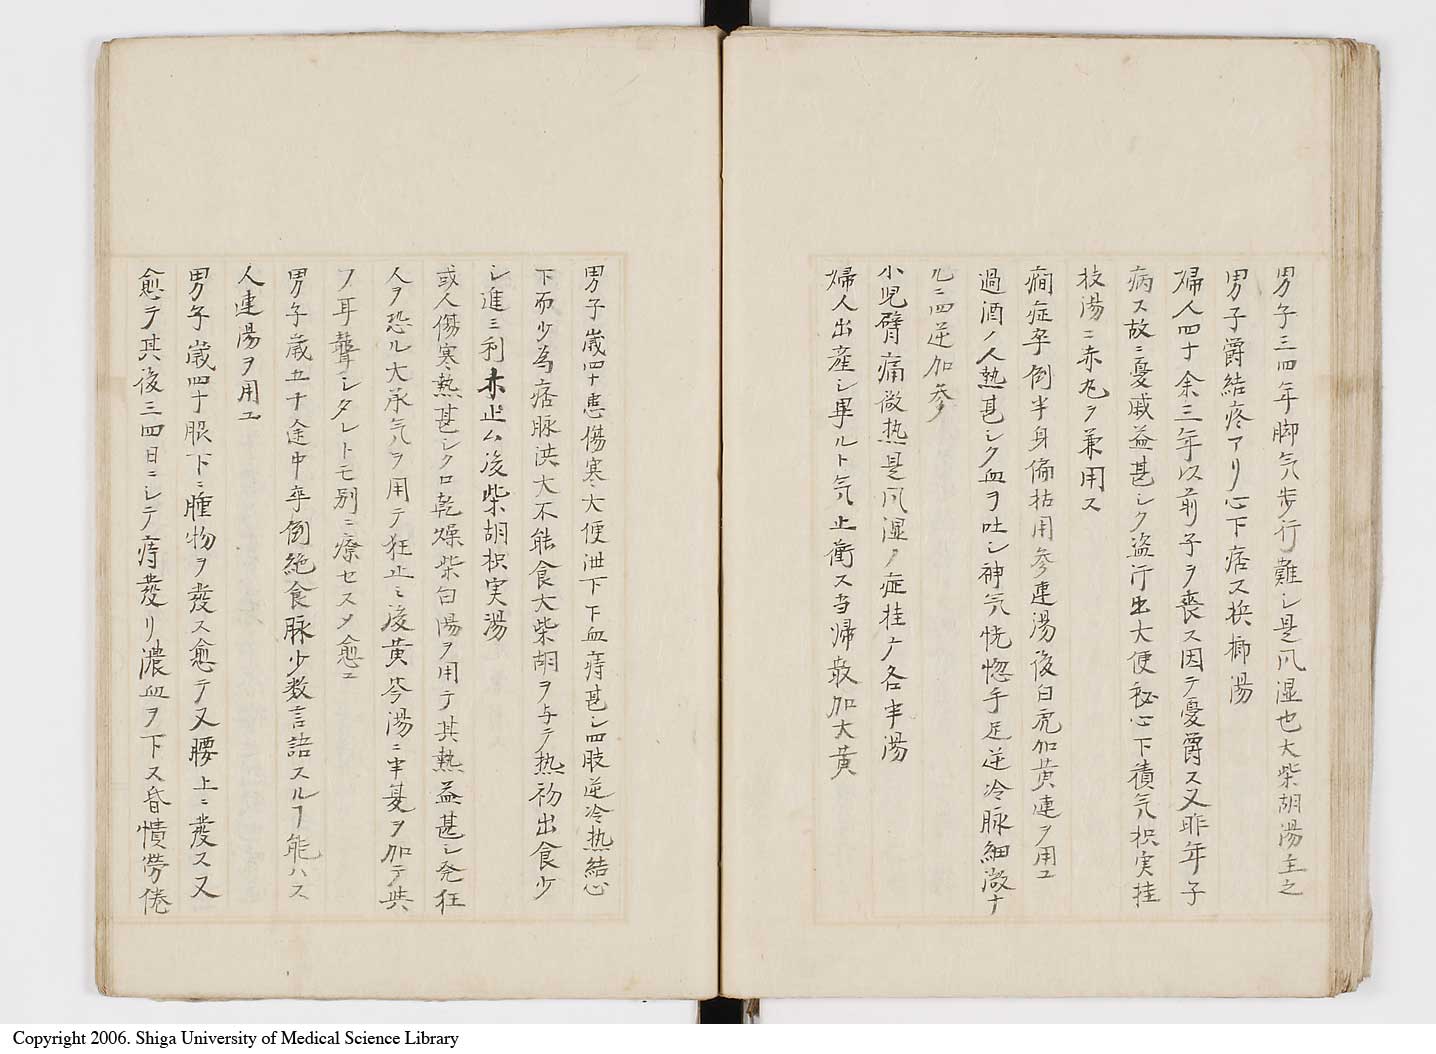 男子三四年脚気歩行難シ是風湿也大柴胡湯主之
男子欝結疼アリ心下痞ス檳榔湯
婦人四十余三年以前子ヲ喪ス因テ憂欝ス又昨年子
病ス故ニ憂戚益甚シク盗汗出大便秘心下積気枳実桂
枝湯ニ赤丸ヲ兼用ス
癇症卒倒半身偏枯用参連湯後白虎加黄連ヲ用ユ
過酒ノ人熱甚シク血ヲ吐シ神気恍惚手足逆冷脉細微ナ
ルニ四逆加参
小児臂痛微热是風湿ノ症桂广各半湯
婦人出産シ畢ルト気上衝ス当帰散加大黄
男子歳四十患傷寒大便泄下下血痔甚シ四肢逆冷热結心
下而少為痞脉洪大不能食大柴胡ヲ与テ热初出食少
シ進ミ利未止ム後柴胡枳実湯
或人傷寒熱甚シク口乾燥柴白湯ヲ用テ其熱益甚シ発狂
人ヲ恐ル大承気ヲ用テ狂止ミ後黄芩湯ニ半夏ヲ加テ與
フ耳聾シタレトモ別ニ療セスメ愈ユ
男子歳五十途中卒倒絶食脉少数言語スルヿ能ハス
人連湯ヲ用ユ
男子歳四十腋下ニ腫物ヲ發ス愈テ又腰上ニ發ス又
愈テ其後三四日ニシテ痔發リ濃血ヲ下ス昏憒労倦
Copyright 2006. Shiga University of Medical Science Library